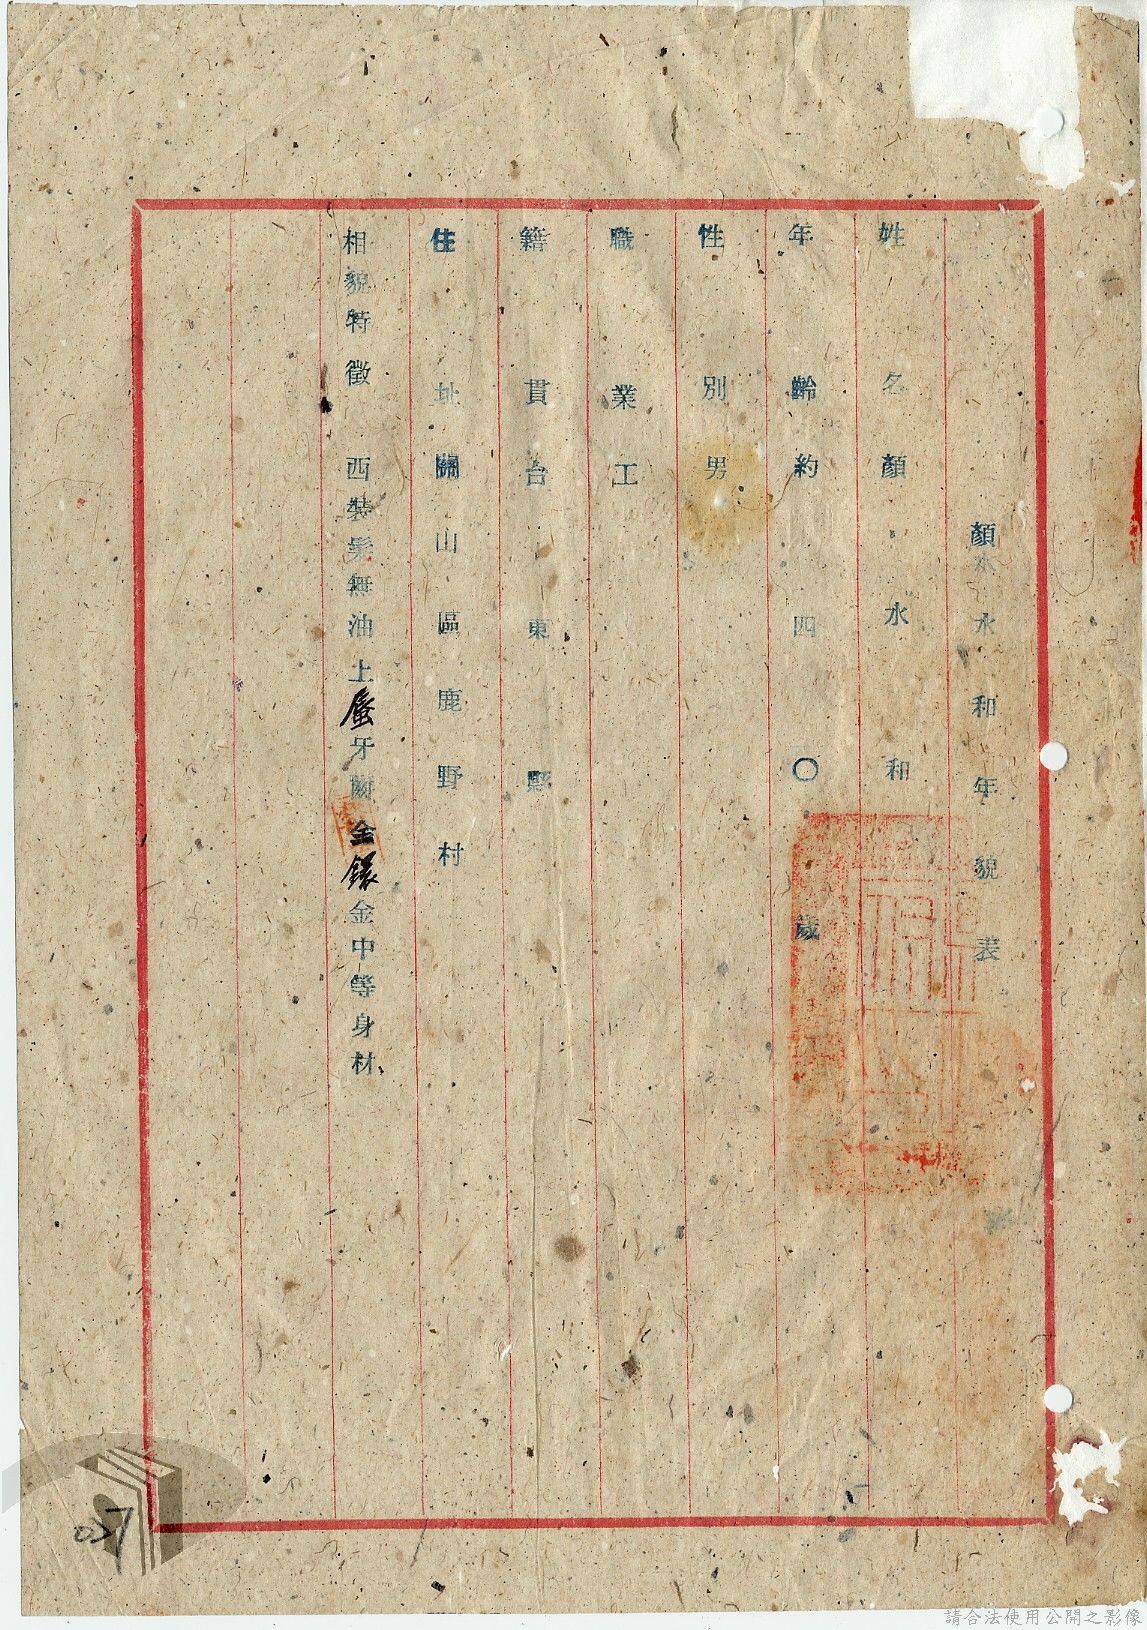 顏水永和年貌表
姓名顏水和
年齡約四〇歲
性別男
職業工
籍貫台東縣
住址關山區鹿野村
相貌特徵 西裝髮無油上蚕牙齒全鑲金中等身材
037
請合法使用公開之影像